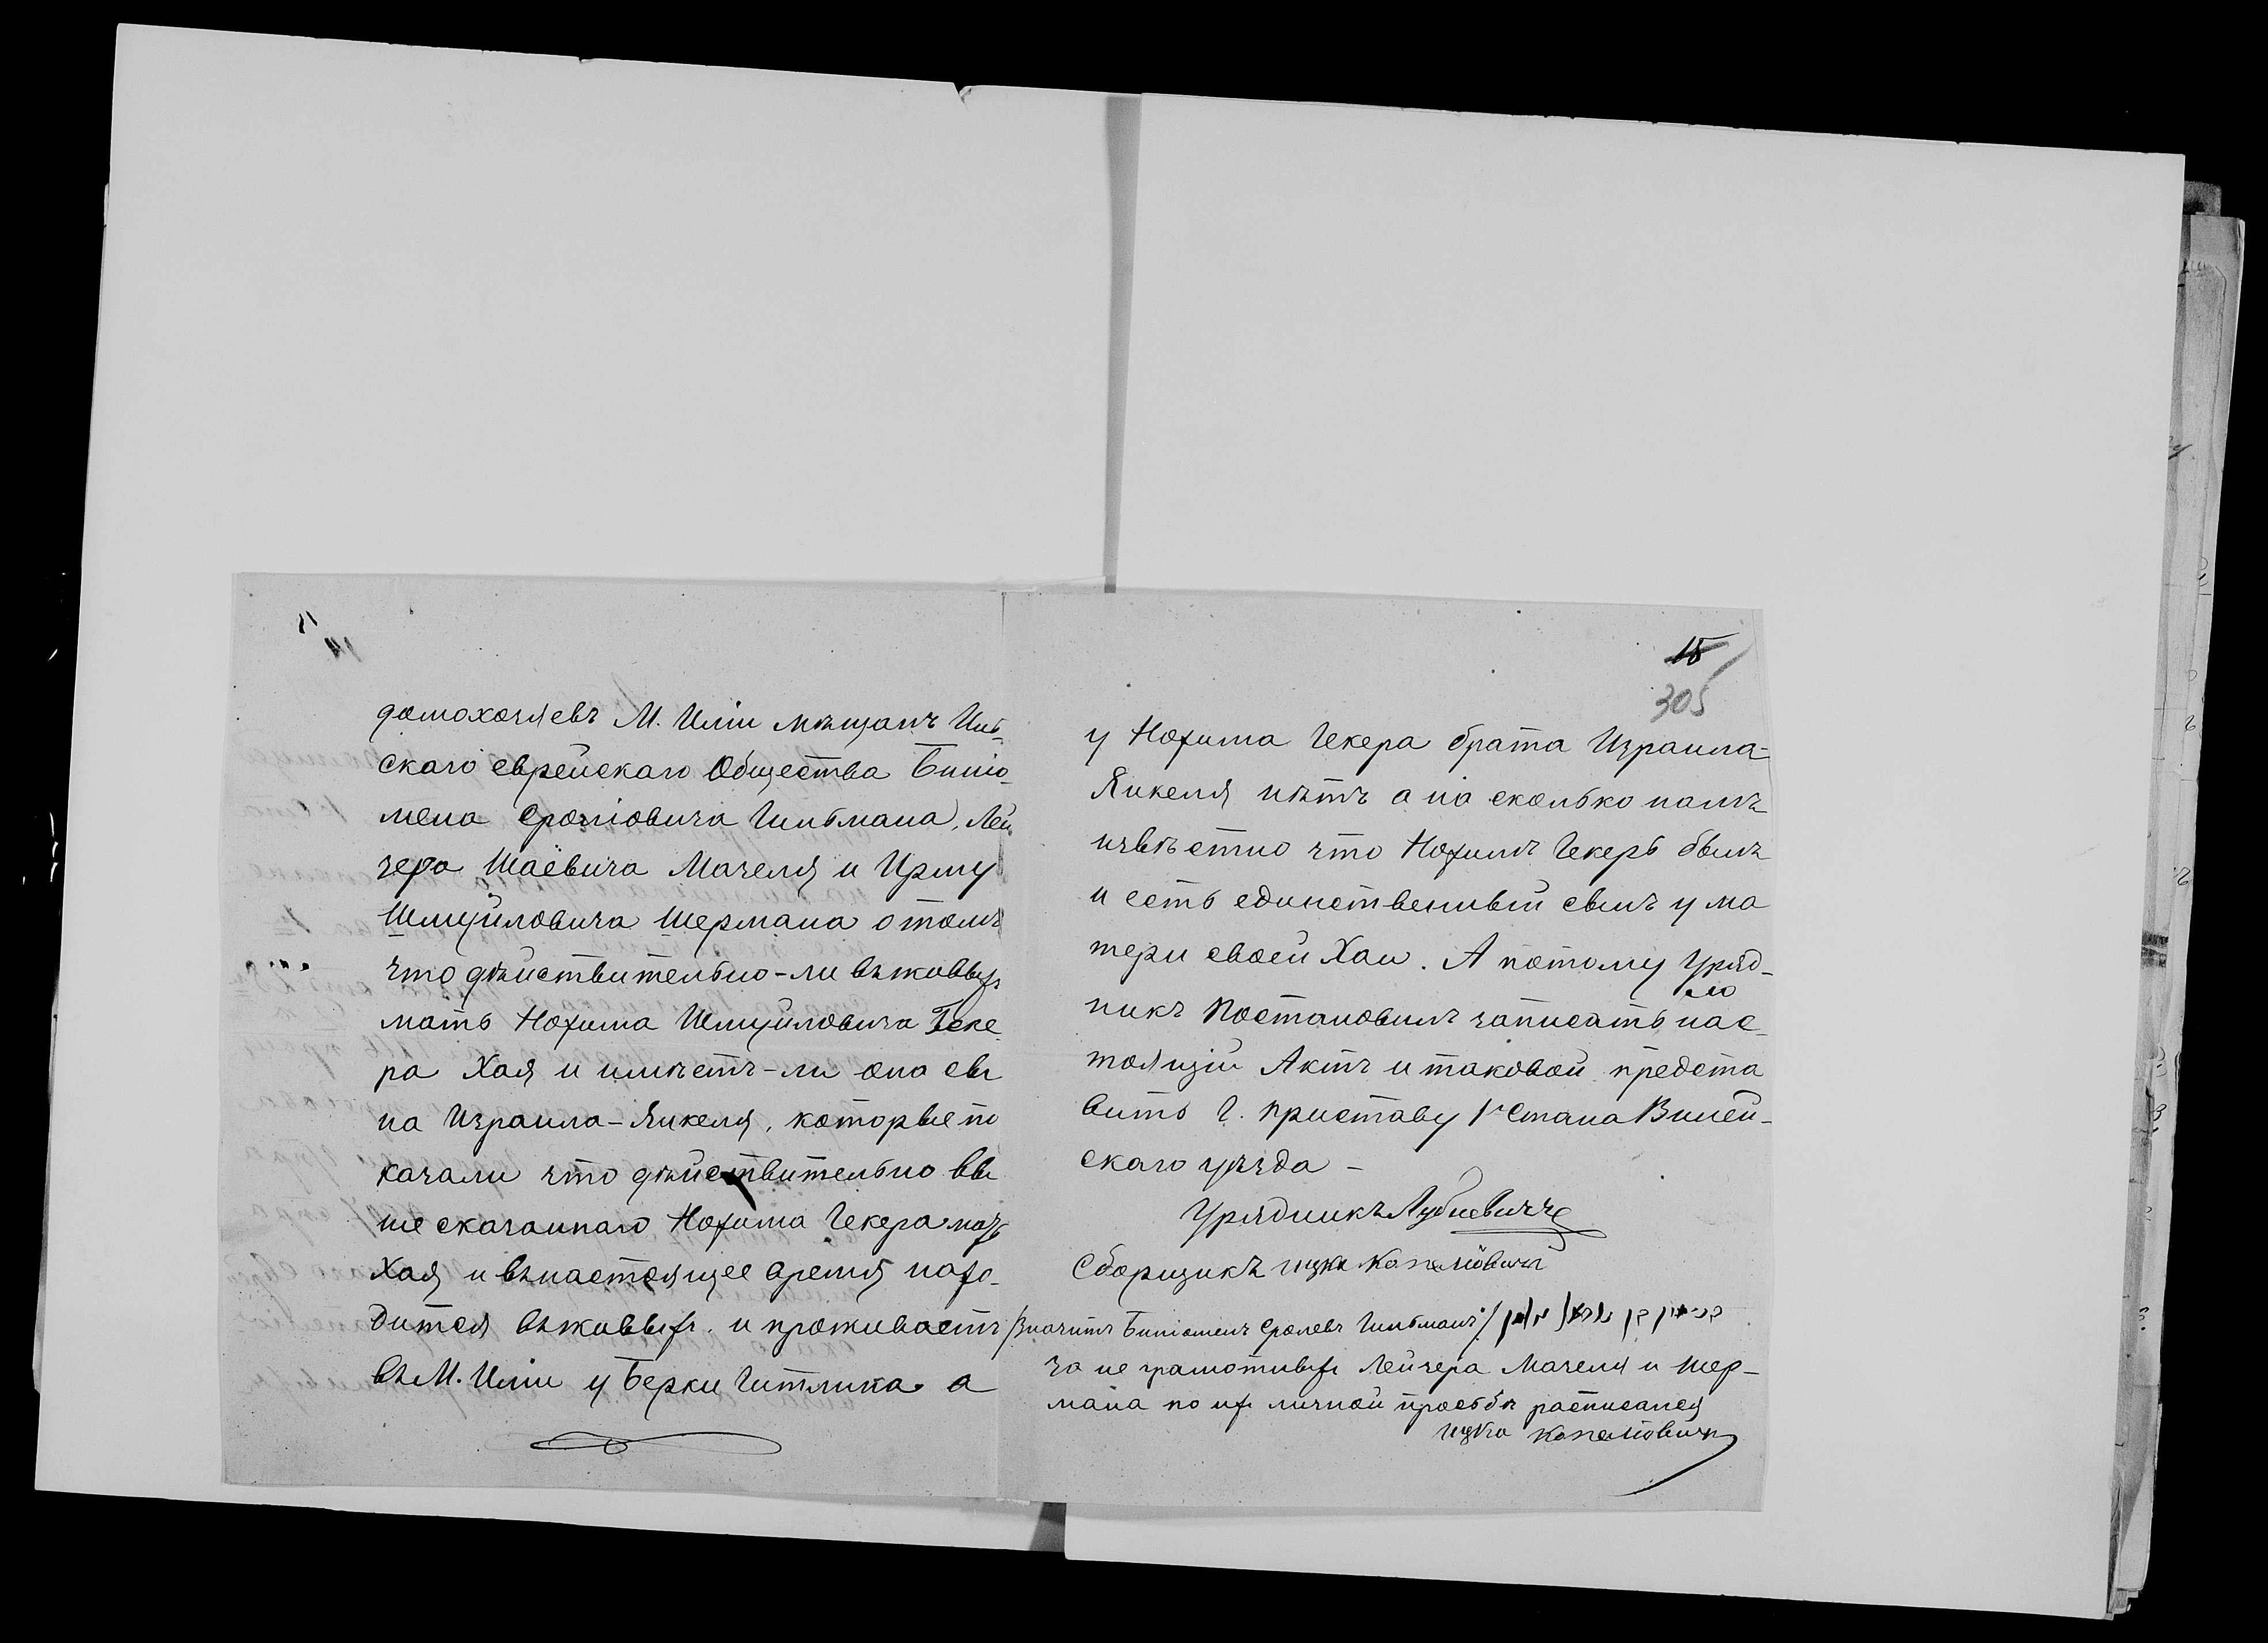 домохозяевъ М. Иліи мѣщанъ Иль-
скаго еврейскаго Общества Биню-
мена Сроліовича Гильмана, Лей
зера Шаёвича Мазеля и Ирму
Шмуйловича Шермана о томъ
что дѣйствительно-ли въживыхъ
мать Нохима Шмуйловича Геке
ра Хая и имѣетъ-ли она сы
на Израила-Янкеля, которые по
казали что дѣйствительно вы
ше сказаннаго Нохима Гекера мать
Хая и въ настоящее время нахо-
дится въживыхъ и проживаетъ
въ М. Иліи у Берки Гитлика а
15
305
у Нохима Гекера брата Израила-
Янкеля нѣтъ а на сколько намъ
извѣстно что Нохимъ Гекеръ былъ
и есть единственный сынъ у ма
тери своей Хаи. А потому Уряд-
никъ Постановилъ записать нас-
тоящій Актъ и таковой предста
вить Г. Приставу 1го Стана Вилей-
скаго уѣзда -
Урядникъ
Сборщикъ Ицка Копелювичъ
Значитъ Биніоменъ Сролевъ Гильманъ
за не грамотныхъ Лейзера Мазеля и Шер-
мана по ихъ личной просьбѣ росписался
Ицка Копелювичъ